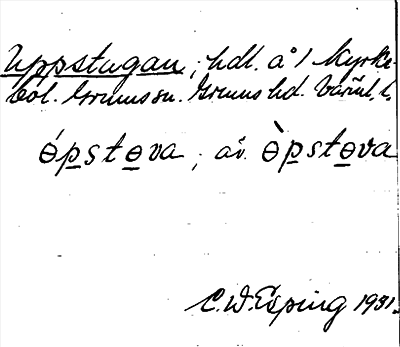 Uppstugan, hdl. å 1 Kyrke-
bol. Grums sn. Grums hd. Värml. l.
ɵ́pstɵva, äv. ɵ̀pstɵva
C.W. Esping 1931.